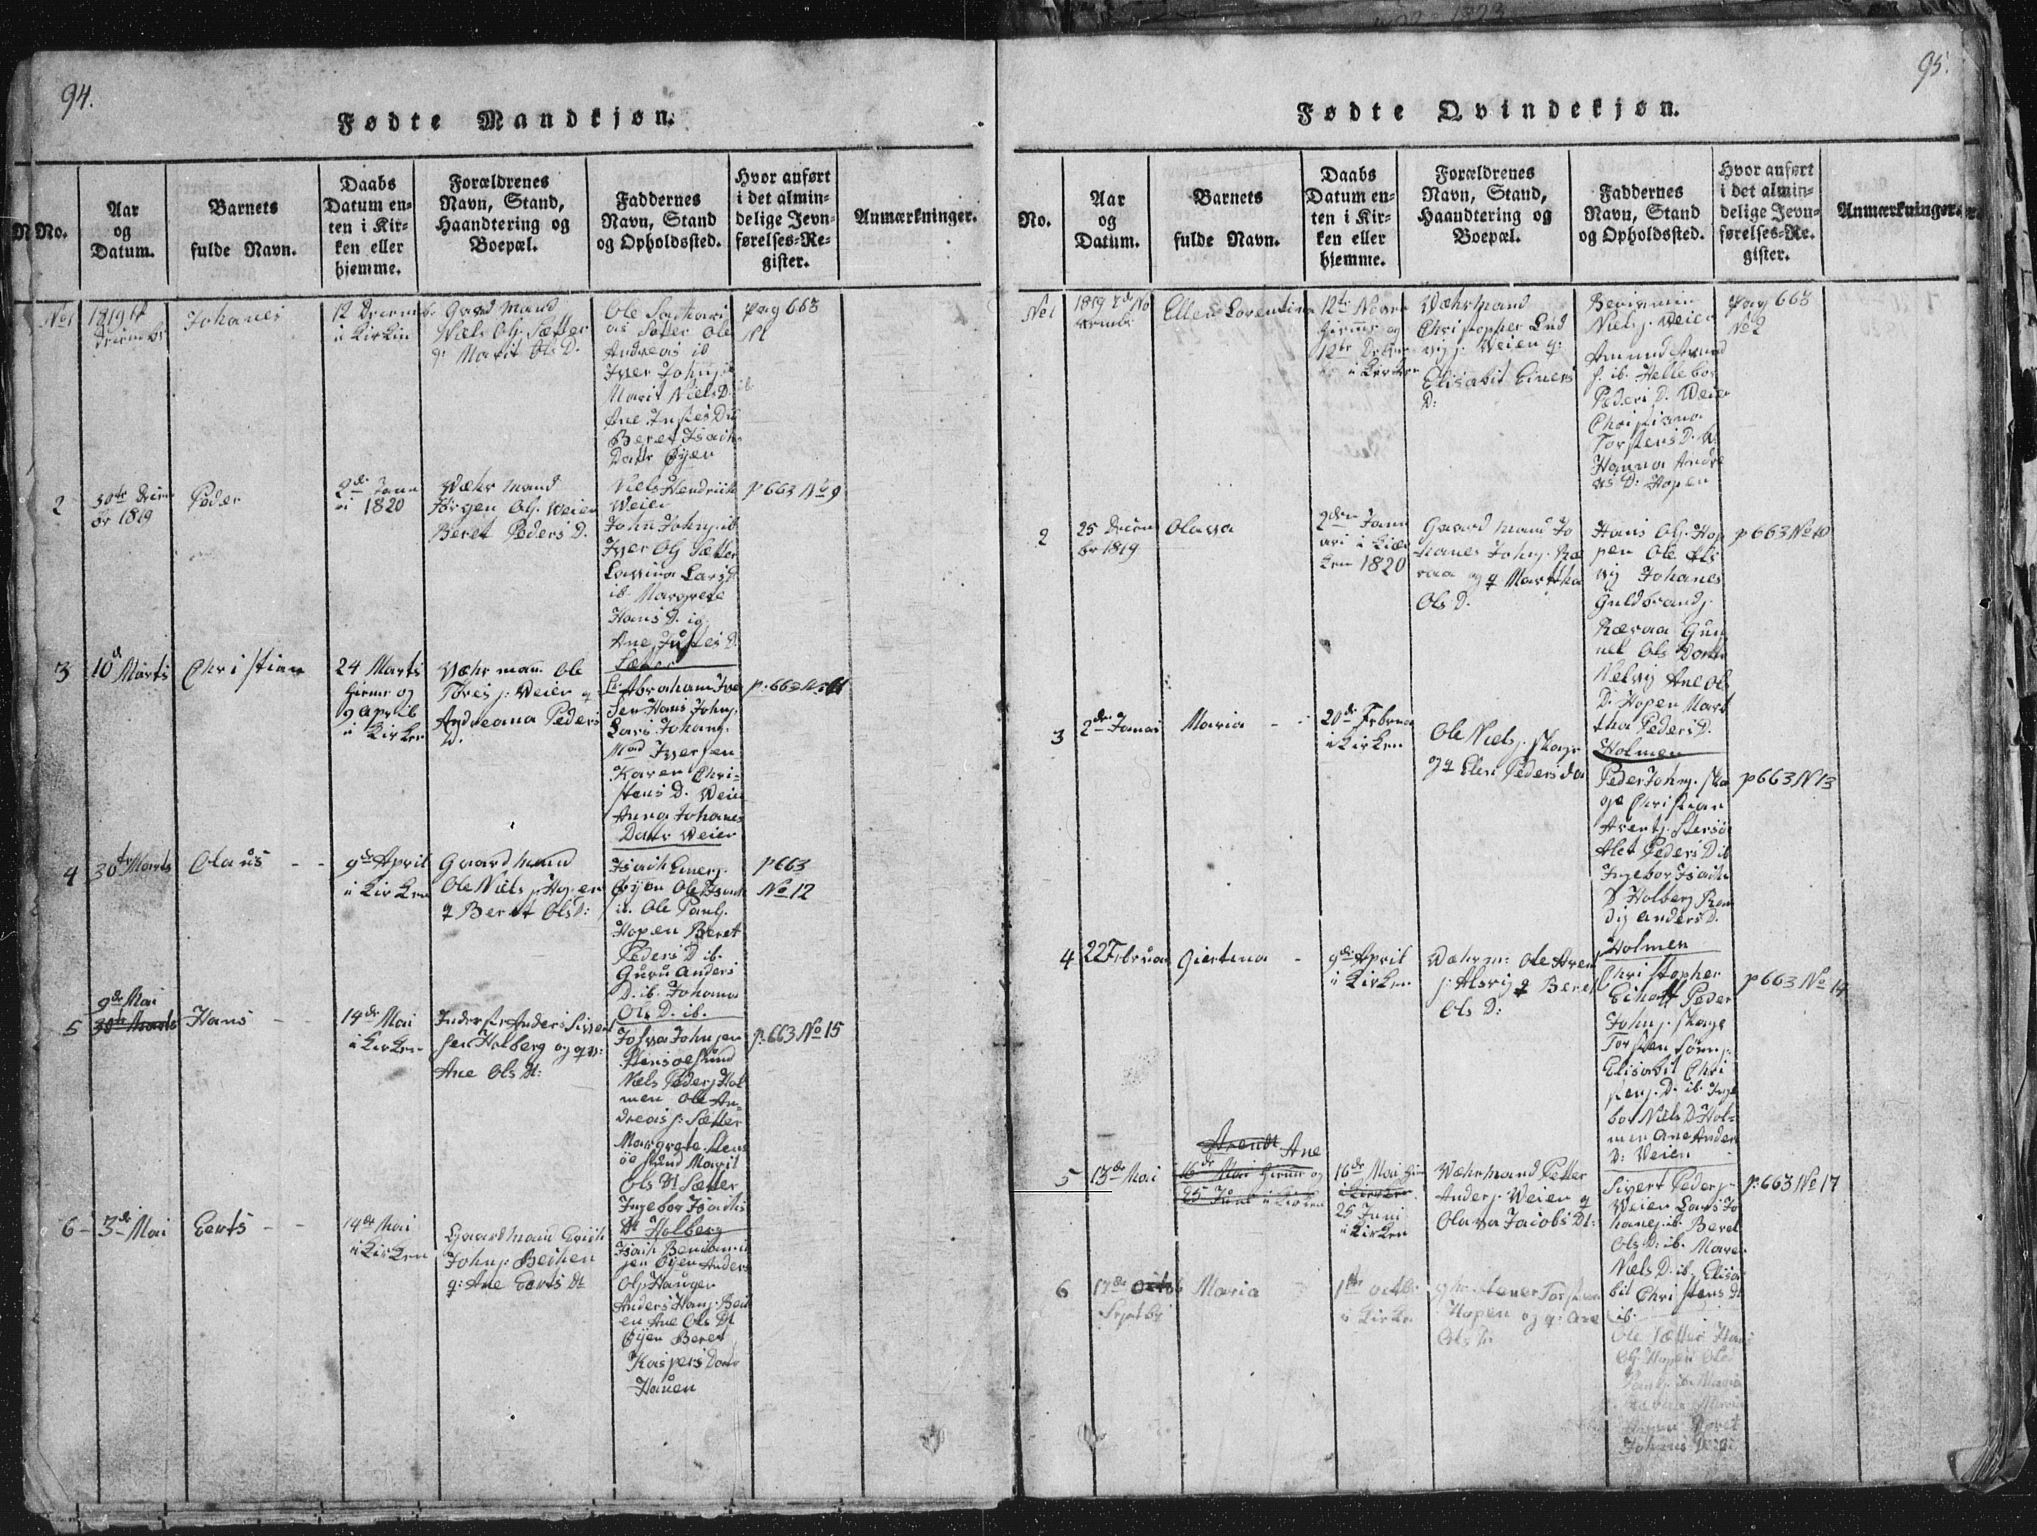 94.
Fødte Mandkjøn.
No.
Aar
og
Datum.
Barnets
fulde Navn.
Daabs
Datum en-
ten i Kir-
ken eller
hjemme.
Forældrenes
Navn, Stand,
Haandtering og
Boepæl.
Faddernes
Navn, Stand
og Opholdssted.
Hvor anført
i det almin-
delige Jevn-
førelses-Re-
gister.
Anmærkninger.
No 1
1819
Johanes
i Kirken
Gaard Mand
Niels Ols. Sætter
Marit Ols D.
Andreas ib
Iver Johns.
Marit Niels D.
Beret Isach
Datr Øyen
pag 663
2
30te
br 1819
Peder
2de Janu
1820
Wæhrmand
Jørgen Ols. Weien
Beret Peders D.
Niels Hendrich
Weien
John Johns. ib
Iver Ols Sætter
Lavina Lars D.
ib. Margrete
Hans D. ig
Ane Justes D.
Sætter
p 663 No 9
3
10de Marts
Christian
24 Marts
hiemme og
9 April
i Kirken
Wæhrman Ole
Tores s: Weien q
Andreana Peders
D.
Abraham Iver
sen Hans Johns.
Lars Johans.
Iversen
Karen Chri-
stens D. Weien
Anna Johanes
Datr Weien
p. 663 No 11
4
30te Marts
Olaus
9de April
i Kirken
Gaard Mand
Ole Niels s Hopen
q Beret Ols D:
Isach Einers.
Øyen Ole Isach
ib. Ole Pauls.
Hopen Beret
Peders D ib.
Guru Anders
D. ib. Johana
Ols D. ib.
p 663
No 12
9de Mai
5
30te Marts
Hans
14de Mai
i Kirken
Inderster Anders Siver
sen Holberg og q:
Ane Ols Dt:
Johns en
Stensøesund
Niels Peders. Hol
men Ole An-
dreas s: Sætter
Margrete Stens
øesund Marit
Ols Dt Sætter
Ingebor Isachs
Dt Holberg
p. 663 No 15
6
3de Mai
Eerts
14de Mai
i Kirken
Gaardmand Erich
Johns Bechen
q: Ane Eerts Dt
Isach Beniami
sen Øyen Anders
Ols. Haugen
Anders Hans. Bech
en Ane Ols Dt
Øyen Beret
Kaspers Datr
Hauen
95.
Fødte Qvindekjøn.
No.
Aar
og
Datum.
Barnets
fulde Navn.
Daabs
Datum en-
ten i Kir-
ken eller
hjemme.
Forældrenes
Navn, Stand,
Haandtering og
Boepæl.
Faddernes
Navn, Stand
og Opholdssted.
Hvor anført
i det almin-
delige Jevn-
førelses-Re-
gister.
Anmærkninger.
No 1
1819
Ellen Lorentina
12te
hiemme og
12te
i Kirken
Wæhrmand
Christopher Lud
vig s: Weien q:
Elisabit Einers
D:
Beniamin
Niels s. Weien
Amund
s. ib. Hellebor
Peders D. Weien
Christiana
Torstens D. W.
Hanna Andre
as D: Hopen
pag 663
No 2
2
25
br 1819
Olava
2den Janu
ari i Kier
ken 1820
Gaard Mand Jo
hanes Johns. Ræ
vaa og q Martha
Ols D.
Hans Ols. Hop
pen Ole Els
vig Johanes
Guldbrands.
Rævaa Gun
nel Ols Dottr
Nelvig Ane Ols
D. Hopen Mart
tha Peders D.
Holmen
p 663 No 10
3
2den Januar
Maria
20de Februa
i Kirken
Ole Niels s. Skage
og q Elen Peders da
Peder Johns. Ska
ge Christian
Arents. Stensø
Alet Peders D ib
Ingebor Isachs
D Holberg Ran
dig Anders D.
Holmen
p 663 N 13
4
22 Februar
Giertina
9de April
i Kirken
Wæhrm: Ole Aren
s: Alsvig q Beret
Ols D:
Christopher
Eichoff Peder
Johns. Skage
Torsten Sørns:
Elisabit Chri
stens. D. ib. Inge
bor Niels D Hol-
men Ane Anders
D: Weien
p 663 No 14
5
13de Mai
Arendt Ane
16de Mai hiemme og
25 Juni i Kirken
16de Mai hiem
i Kirken
25 Juni
i Kirken
Wæhrmand Petter
Anders s. Weien q
Olava Jacobs Dt:
Sivert Peders
Weien Lars Jo
hanes. ib. Beret
Ols D: ib. Maret
Niels D. ib. Elisa
bit Christens Dt
ib.
p: 663 No 17
6
17de Octob
Septbr
Maria
1ste Octbr
i Kirken
Hopen og q: Ane
Ols D:
Ole Sætter Hans
Ols. Hopen Ole
Pauls. ib. Maria
Beret
Johans Dotr